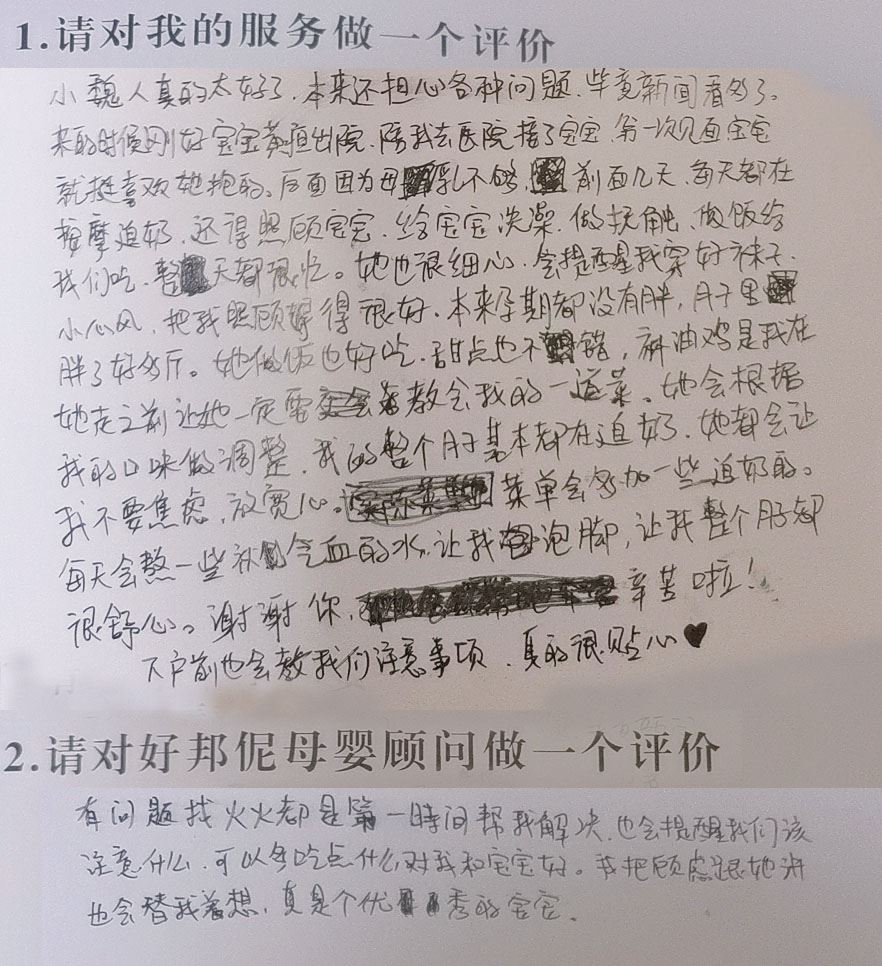 1.请对我的服务做一个评价
小魏人真的太好了、本来还担心各种问题、毕竟新闻看多了。
来的时候刚好宝宝黄疸出院、陪我去医院接了宝宝、第一次见面宝宝
就挺喜欢她抱的。后面因为母乳不够、前面几天、每天都在
按摩追奶、还得照顾宝宝、给宝宝洗澡、做抚触、做饭给
我们吃、整天都很忙。她也很细心、会提醒我穿好袜子、
小心风、把我照顾得很好、本来孕期都没有胖，月子里
胖了好多斤。她做饭也好吃、甜点也不错，麻油鸡是我在
她走之前让她一定要教会我的一道菜。她会根据
我的口味做调整、我的整个月子基本都在追奶、她都会让
我不要焦虑，放宽心。菜单会多加一些追奶的。
每天会熬一些补气血的水，让我泡脚，让我整个月子都
很舒心。谢谢你，辛苦啦！
下户前也会教我们注意事项、真的很贴心♥
2.请对好邦伲母婴顾问做一个评价
有问题找火火都是第一時间帮我解决、也会提醒我们该
注意什么、可以多吃点什么对我和宝宝好。我把顾虑跟她讲
也会替我着想，真是个优秀的宝宝。